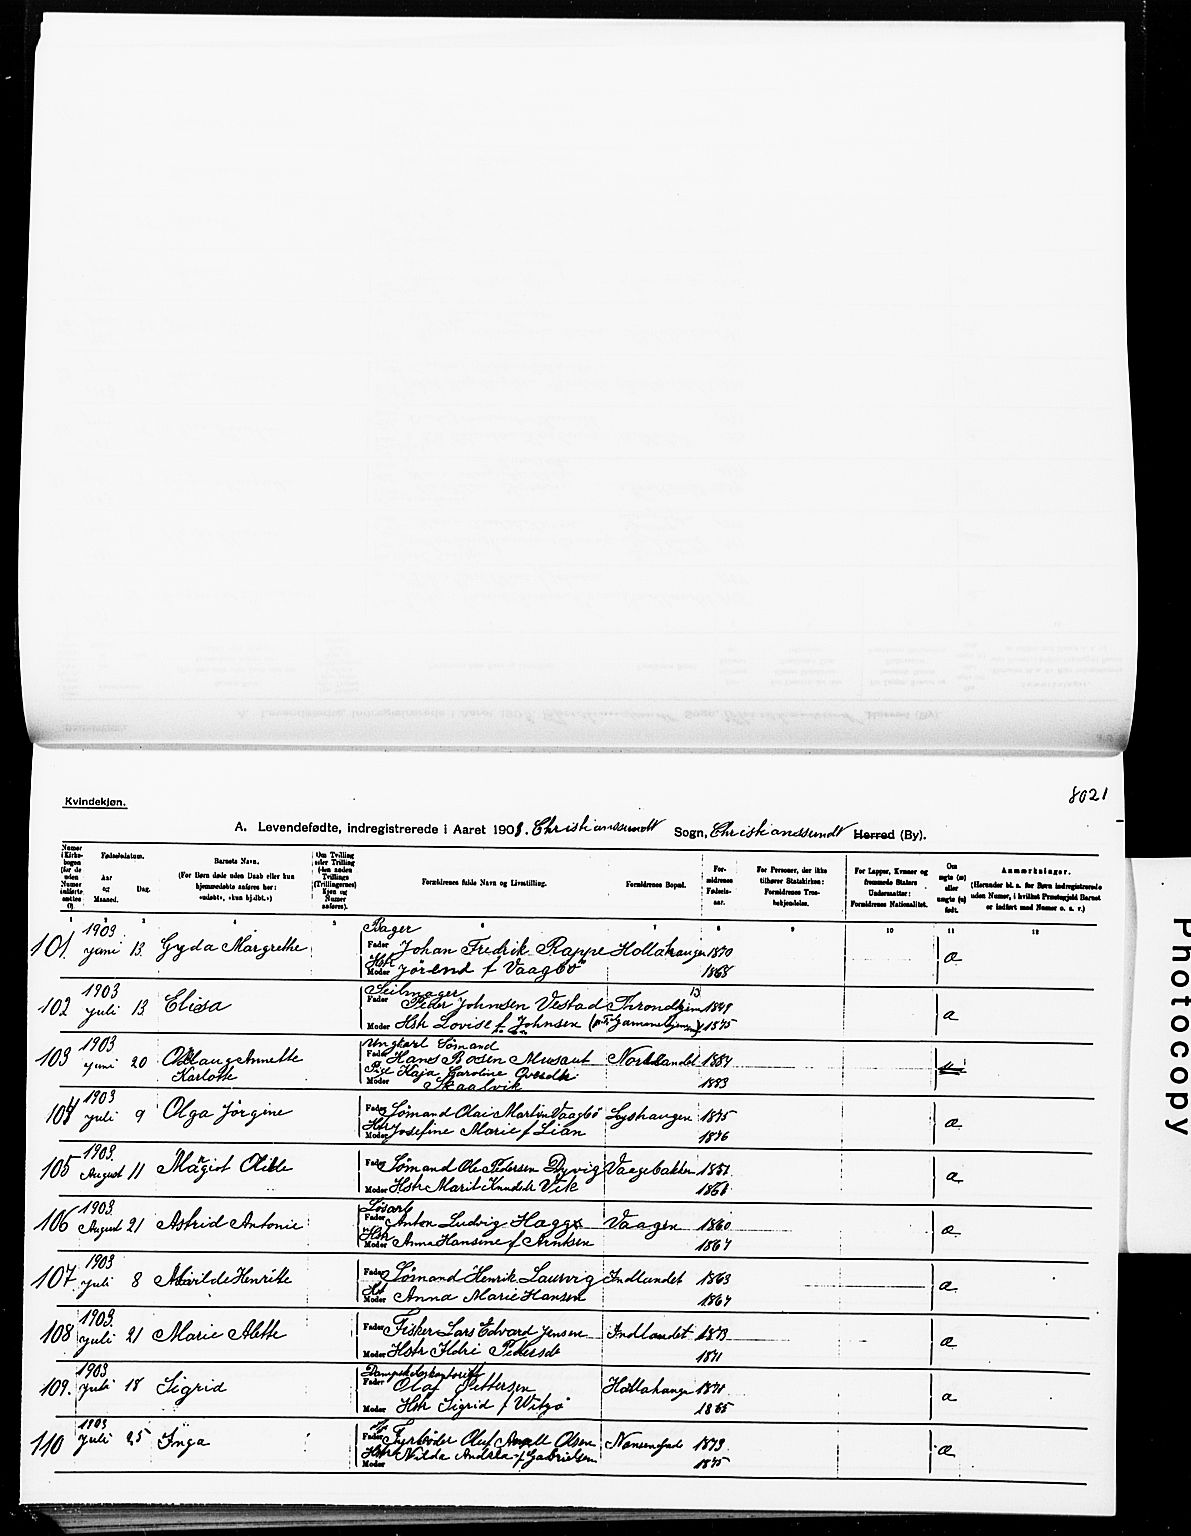 8021
Kvindekjøn.
A. Levendefødte, indregistrerede i Aaret 1903. Christianssundt Sogn, Christianssundt Herred (By).
Numer i Kirkebogen (for de uden Numer indførte sættes 0)
Fødselsdatum.
Aar og Maaned.
Dag.
Barnets Navn.
(For Børn døde uden Daab eller kun hjemmedøbte anføres her: «udøbt», «kun hj.døbt.»)
Om Tvilling eller Trilling (den anden Tvillings (Trillingernes) Kjøn og Numer anføres).
Forældrenes fulde Navn og Livsstilling.
Forældrenes Bopæl.
Forældrenes Fødselsaar.
For Personer, der ikke tilhører Statskirken: Forældrenes Trosbekjendelse.
For Lapper, Kvæner og fremmede Staters Undersaatter: Forældrenes Nationalitet.
Om ægte (æ) eller uægte (u) født.
Anmærkninger.
(Herunder bl. a. for Børn indregistrerede uden Numer, i hvilket Præstegjeld Barnet er indført med Numer o. s. v.)
1 2 3 4 5 6 7 8 9 10 11 12
1903 Bager
101 Juni 13 Gyda Margrethe Fader Johan Fredrik Rappe Hollahaugen 1870 æ
Hstr Moder Jørend f Vaagbø 1868
1903 Seilmager
102 Juli 13 Elisa Fader Peder Johnsen Vestad Throndhjem 1849 æ
Moder Hstr Lovise f Johnsen 1875
1903 Ungkarl Sømand
103 Juni 20 Annette Fader Hans Rosen Nordlandet 1884
Karlotte Pige Kaja Caroline
Skaalvik 1883
1903
104 Juli 9 Olga Jørgine Fader Sømand Olai Martin Vaagbø Lyshaugen 1875 æ
Hstr Moder Josefine Marie f Lian 1876
1903
105 August 11 Fader Sømand Ole Pedersen Dyrvig Vaagebakken æ
Moder Hstr Marit Knudsdt Vik
1903 Løsarb
106 August 21 Astrid Antonie Fader Anton Ludvig Vaagen 1860 æ
Hstr Moder Anna Hansine f Arntsen 1867
1903
107 Juli 8 Henritte Fader Sømand Henrik Laurvig Indlandet 1863 æ
Hst Moder Anna Marie Hansen 1867
1903
108 Juli 21 Marie Alette Fader Fisker Lars Edvard Jensen Indlandet 1873 æ
Moder Hstr Pedersdt 1871
1903
109. Juli 18 Sigrid Fader Olaf Pettersen æ
Moder Hstr Sigrid f 1865
1903
110 Juli 25 Inga Fader Fyrbøder Oluf Olsen 1873 æ
Hstr Moder Nilda Andrea f Gabrielsen 1875
Photocopy